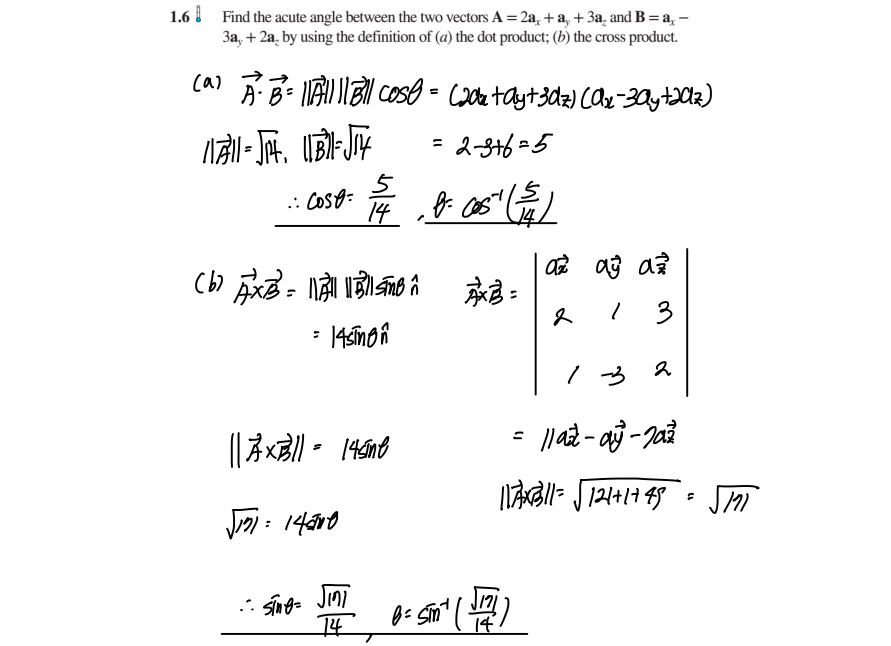 1.6 Find the acute angle between the two vectors A = 2aₓ + a_y + 3a_z and B = aₓ −
3a_y + 2a_z by using the definition of (a) the dot product; (b) the cross product.
(a) A⃗·B⃗ = ||A⃗|| ||B⃗|| cosθ = (2ax+ay+3az)(ax-3ay+2az)
||A⃗|| = √14, ||B⃗|| = √14 = 2-3+6 = 5
∴ cosθ = 5/14 , θ = cos⁻¹(5/14)
(b) A⃗×B⃗ = ||A⃗|| ||B⃗|| sinθ n̂ A⃗×B⃗ = | ax⃗ ay⃗ az⃗
= 14sinθ n̂ 2 1 3
1 -3 2 |
||A⃗×B⃗|| = 14sinθ = 11ax⃗ - ay⃗ - 7az⃗
||A⃗×B⃗|| = √121+1+49 = √171
√171 = 14sinθ
∴ sinθ = √171/14 , θ = sin⁻¹(√171/14)